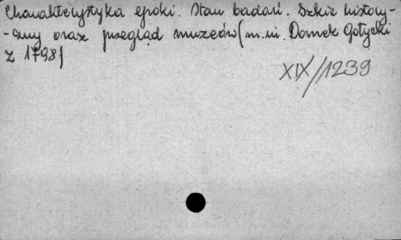 Charakterystyka epoki. Stan badań. Szkic history-
-czny oraz przegląd muzeów (m.in. Domek Gotycki
z 1798)
XIX/1239